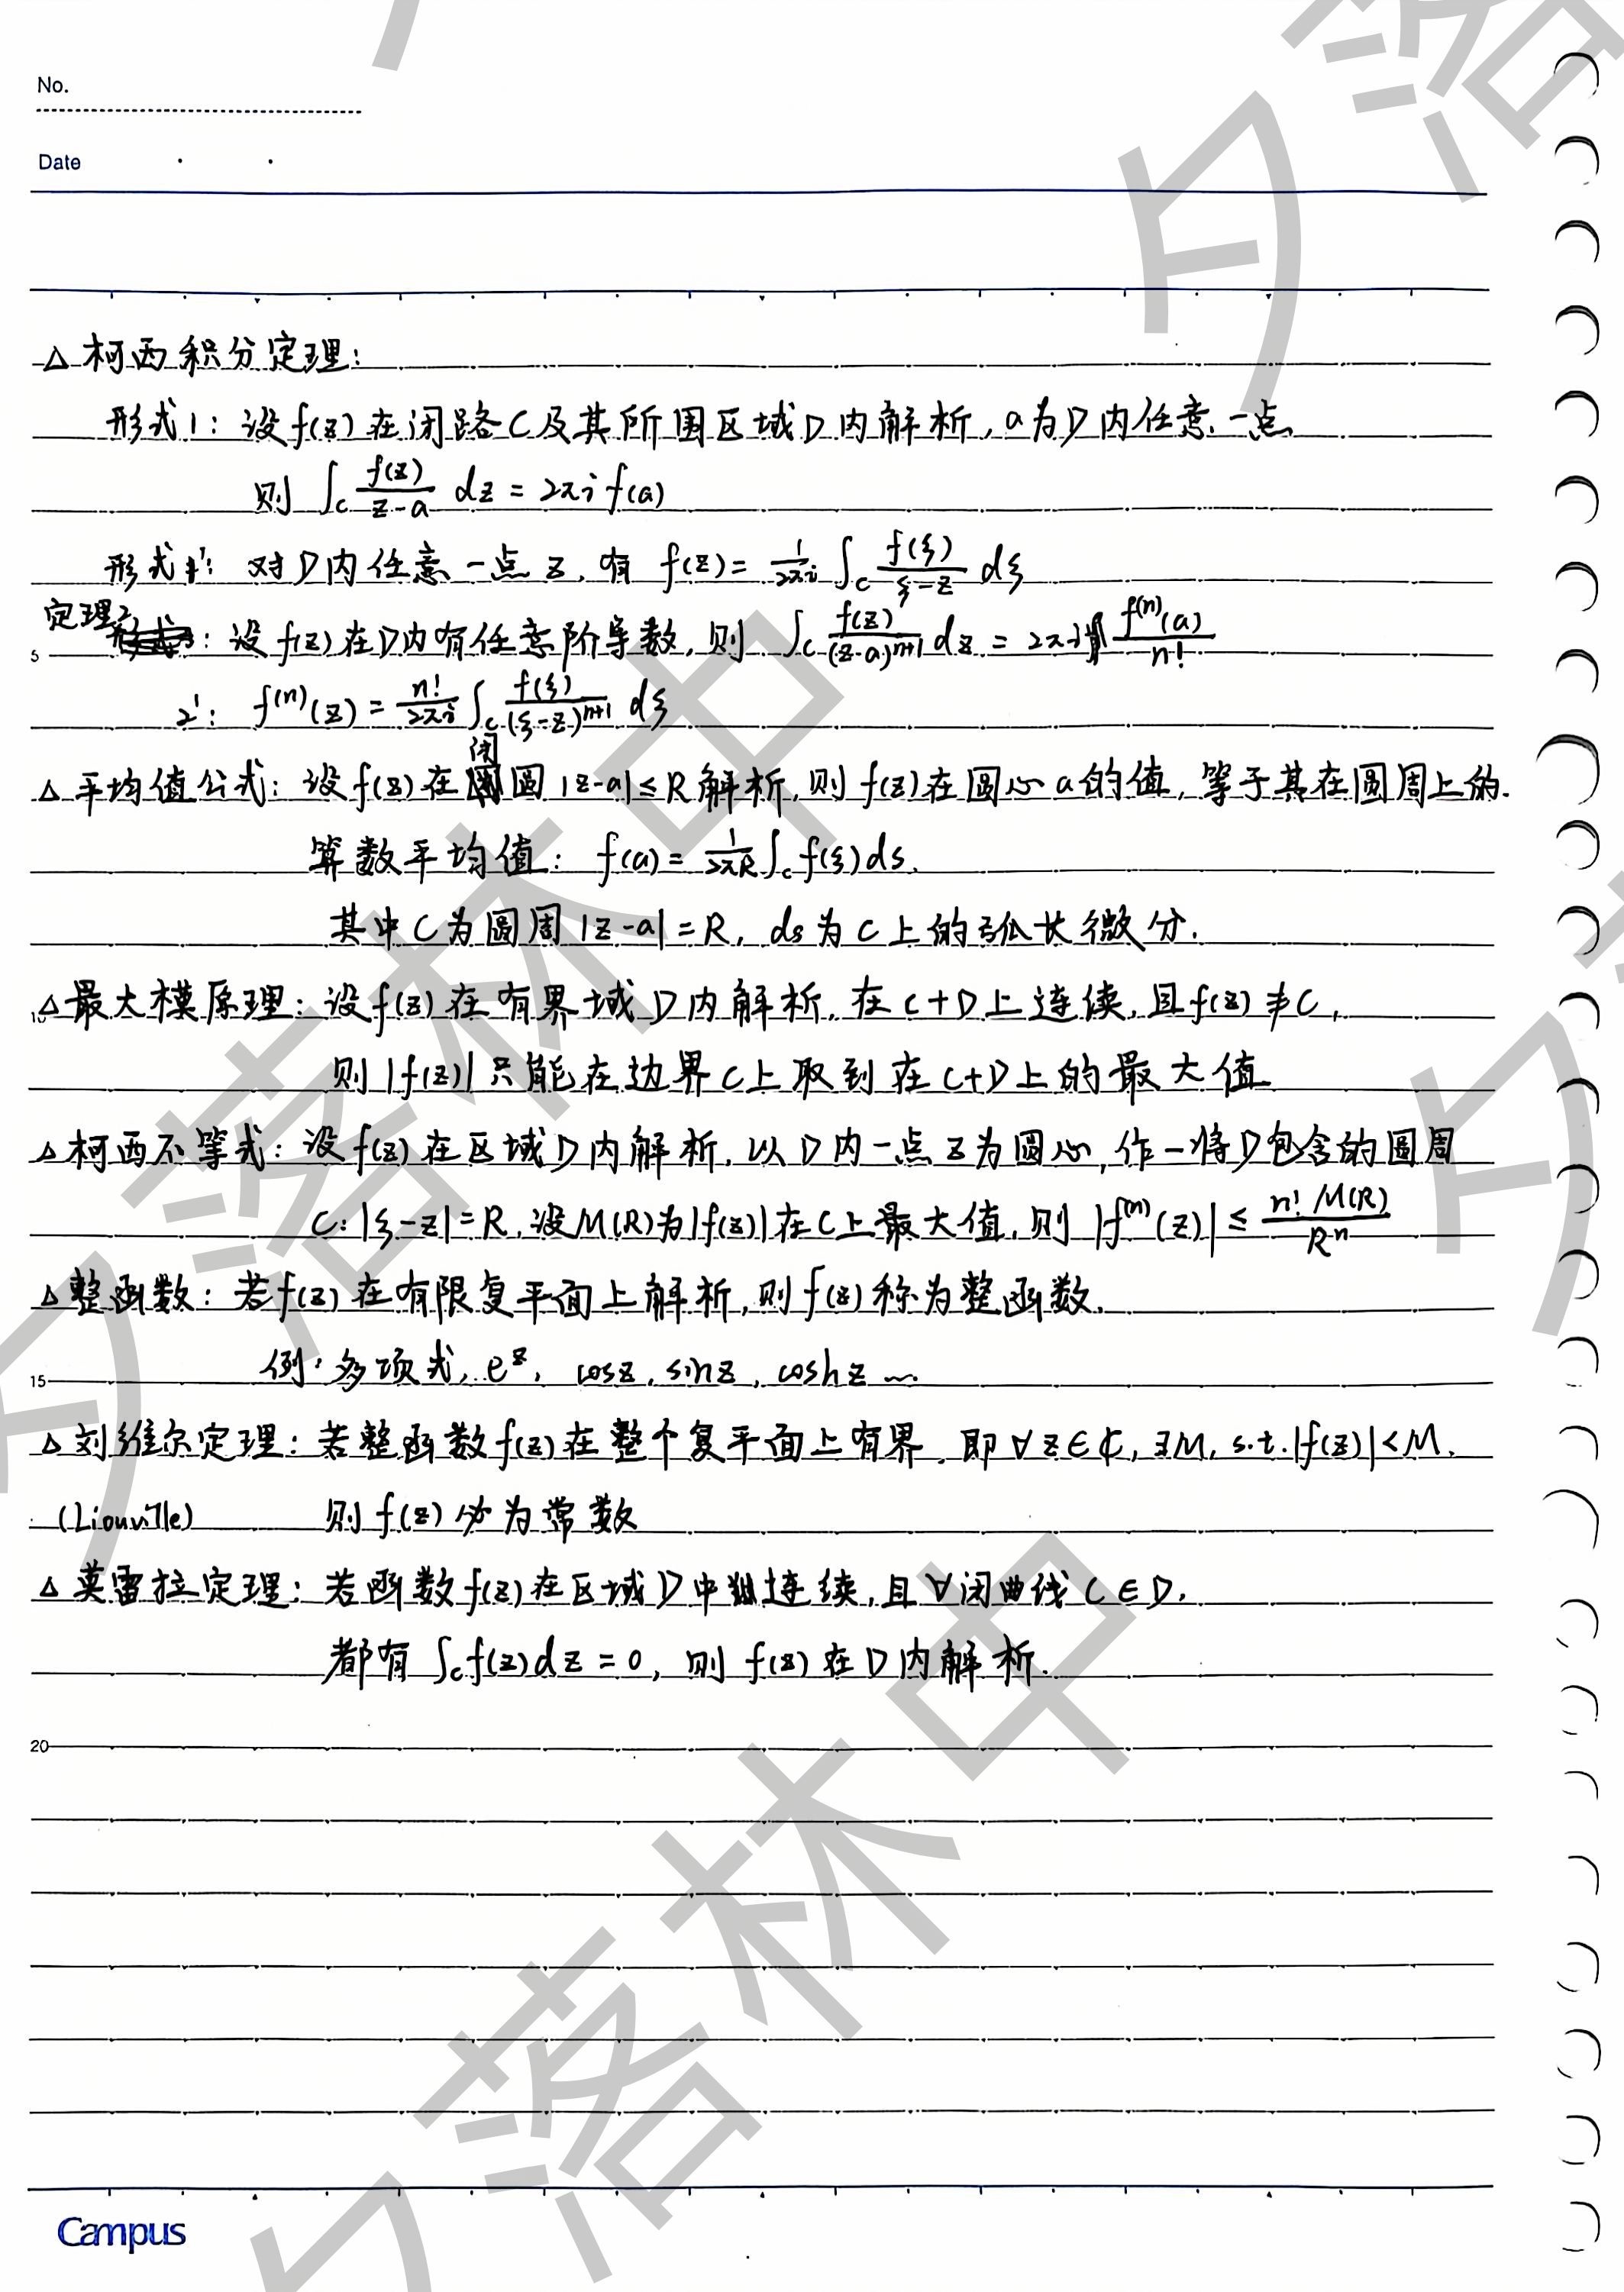 No.
Date
△ 柯西积分定理:
形式1: 设f(z)在闭路C及其所围区域D内解析, a为D内任意一点
则 ∫_C f(z)/(z-a) dz = 2πi f(a)
形式1': 对D内任意一点 z, 有 f(z) = 1/(2πi) ∫_C f(ξ)/(ξ-z) dξ
定理2: 设f(z)在D内有任意阶导数, 则 ∫_C f(z)/(z-a)^{n+1} dz = 2πi f^{(n)}(a)/n!
5
2': f^{(n)}(z) = n!/(2πi) ∫_C f(ξ)/(ξ-z)^{n+1} dξ
△ 平均值公式: 设f(z)在闭圆 |z-a|≤R解析, 则f(z)在圆心a的值, 等于其在圆周上的.
算数平均值: f(a) = 1/(2πR) ∫_C f(ξ)ds.
其中C为圆周|z-a|=R, ds为C上的弧长微分.
10
△ 最大模原理: 设f(z)在有界域D内解析, 在C+D上连续, 且f(z)≢C,
则|f(z)|只能在边界C上取到在C+D上的最大值
△ 柯西不等式: 设f(z)在区域D内解析, 以D内一点z为圆心, 作一将D包含的圆周
C: |ξ-z|=R, 设M(R)为|f(z)|在C上最大值, 则 |f^{(n)}(z)| ≤ n! M(R)/R^n
△ 整函数: 若f(z)在有限复平面上解析, 则f(z)称为整函数.
15
例: 多项式, e^z, cosz, sinz, coshz …
△ 刘维尔定理: 若整函数f(z)在整个复平面上有界, 即∀z∈ℂ, ∃M, s.t. |f(z)|<M.
(Liouville) 则f(z)必为常数
△ 莫雷拉定理: 若函数f(z)在区域D中连续, 且∀闭曲线C∈D,
都有 ∫_C f(z)dz=0, 则f(z)在D内解析.
20
Campus
夕落林中
夕落林中
夕落
夕